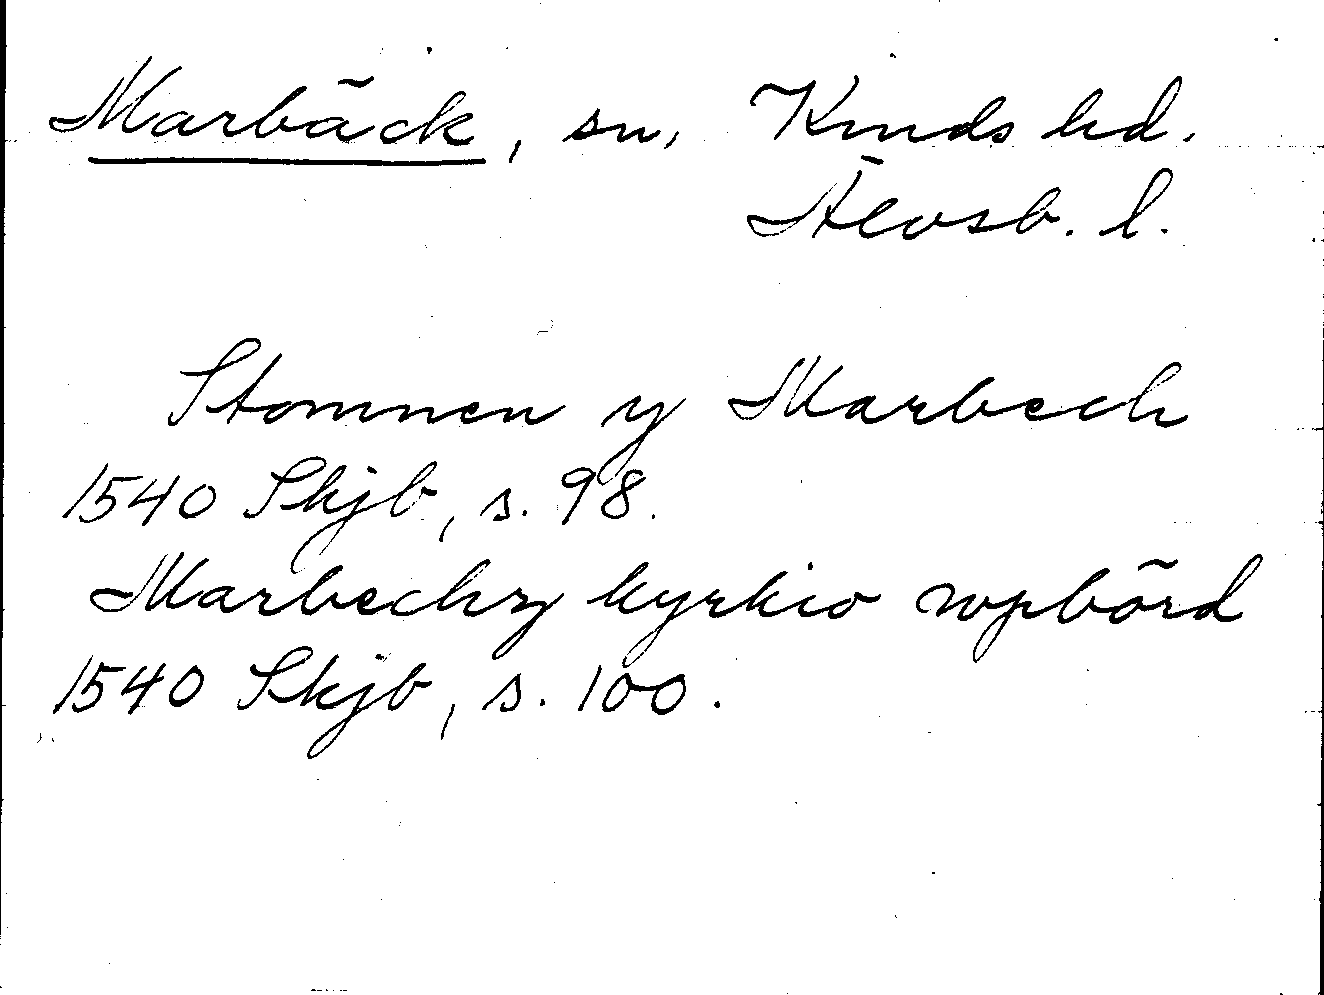 Marbäck, sn, Kinds hd.
Älvsb. l.
Stommen y Marbech
1540 Skjb, s. 98.
Marbechz kyrkio wpbörd
1540 Skjb, s. 100.